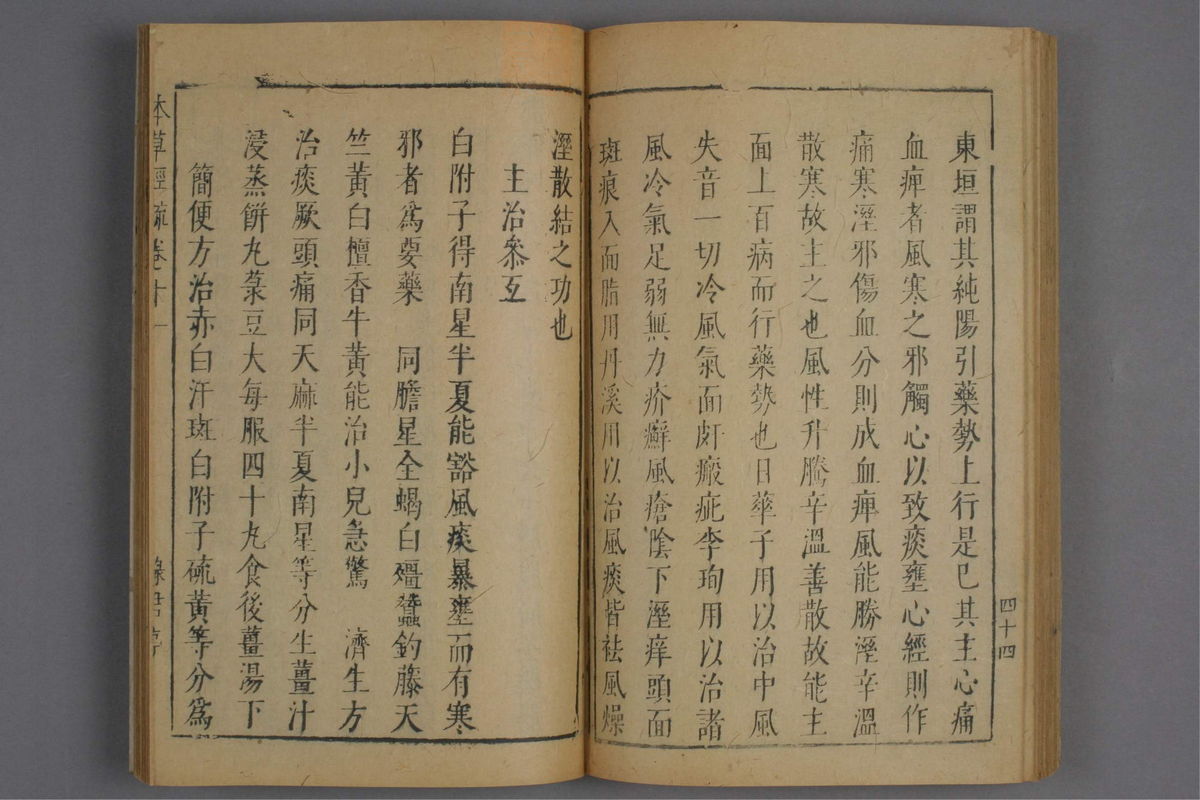 東垣謂其純陽引藥勢上行是巳其主心痛
血痺者風寒之邪觸心以致痰壅心經則作
痛寒溼邪傷血分則成血痺風能勝溼辛溫
散寒故主之也風性升騰辛溫善散故能主
面上百病而行藥勢也日華子用以治中風
失音一切冷風氣面皯瘢疵李珣用以治諸
風冷氣足弱無力疥癬風瘡陰下溼痒頭面
斑痕入面脂用丹溪用以治風痰皆祛風燥
四十四
溼散結之功也
主治叅互
白附子得南星半夏能豁風痰暴壅而有寒
邪者爲要藥 同膽星全蝎白殭蠶釣藤天
竺黃白檀香牛黃能治小兒急驚 濟生方
治痰厥頭痛同天麻半夏南星等分生薑汁
浸蒸餅丸菉豆大每服四十丸食後薑湯下
簡便方治赤白汗斑白附子硫黃等分爲
本草經疏卷十一
綠君亭